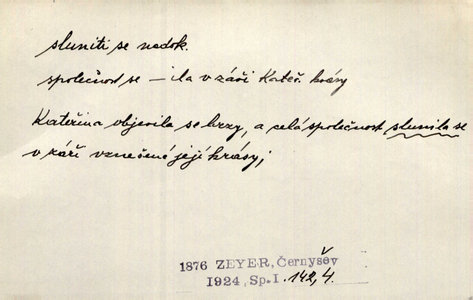 sluniti se nedok.
společnost se – ila v záři Kateř. krásy
Kateřina objevila se brzy, a celá společnost slunila se
v záři vznešené její krásy;
1876 ZEYER, Černyšev
1924, Sp. I. 142, 4.